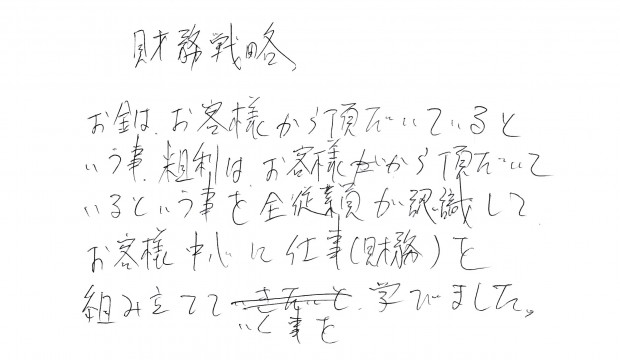 財務戦略
お金は、お客様から頂だいていると
いう事、粗利は、お客様から頂だいて
いるという事を全従業員が認識して
お客様中心に仕事(財務)を
組み立てて 学びました。
いく事を